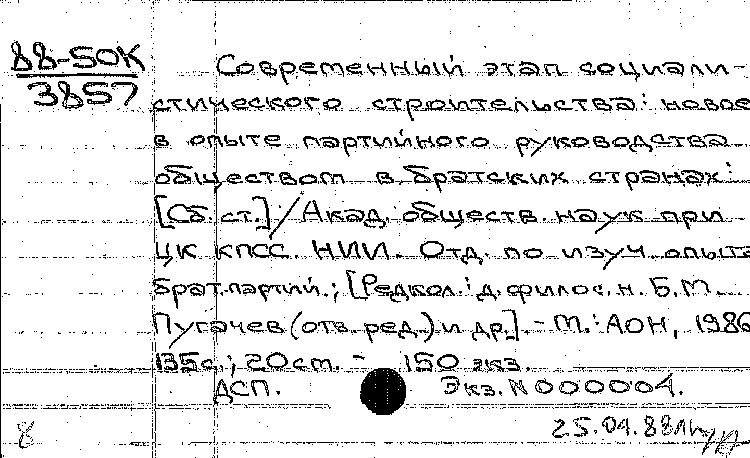 88-50К
3857
Современный этап социали-
стического строительства: новое
в опыте партийного руководства
обществом в братских странах:
[Сб. ст.] / Акад. обществ. наук при
ЦК КПСС. НИИ. Отд. по изуч опыта
брат. партий.; [Редкол.: д. филос. н. Б.М.
Пугачев (отв. ред.) и др.]. - М.: АОН, 1986
135 с.; 20 см. - 150 экз.
ДСП. Экз. N 000004.
8
25.04.88